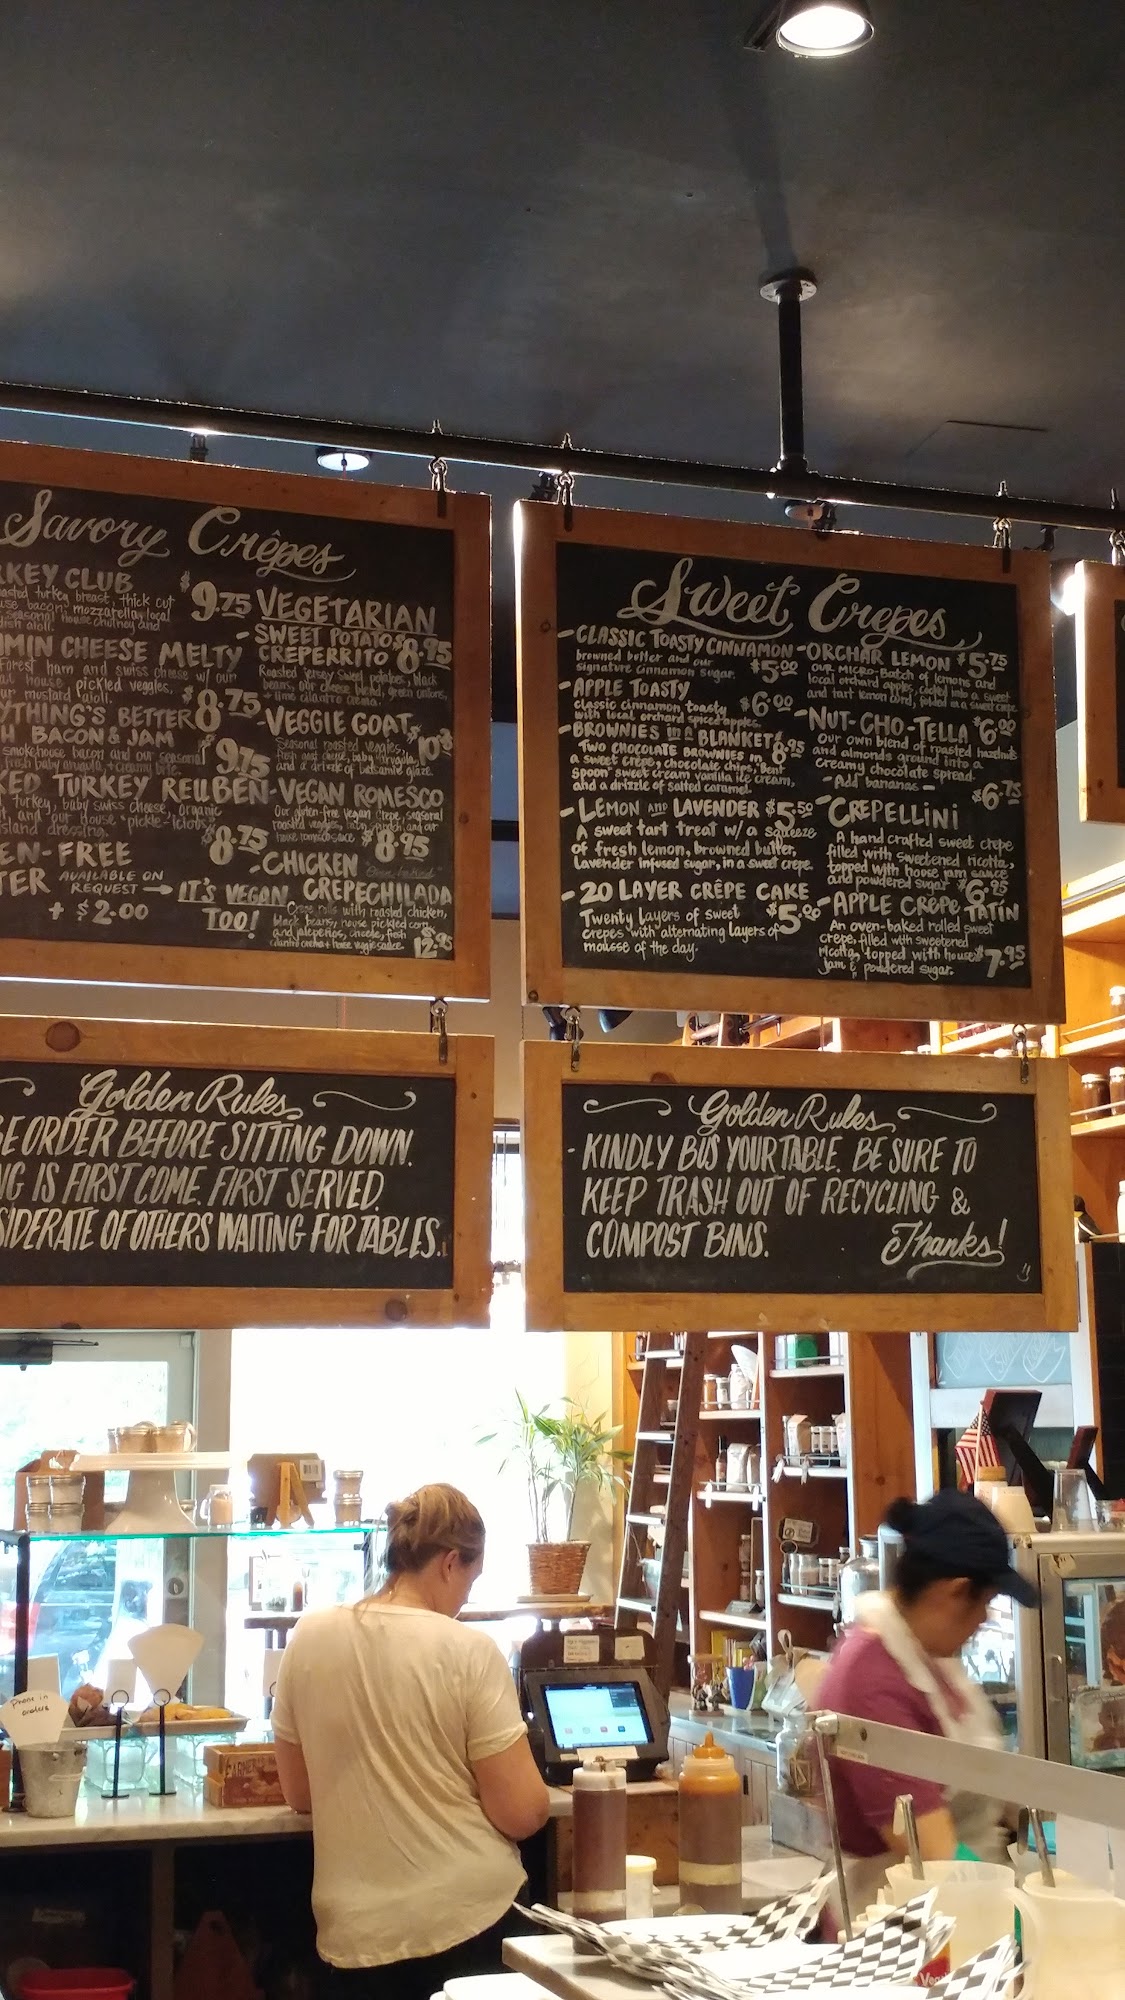 Savory Crêpes
RKEY CLUB $9.75
roasted turkey breast, thick cut
use bacon, mozzarella, local
seasonal house chutney and
aioli.
MIN CHEESE MELTY
Forest ham and swiss cheese w/ our
house, pickled veggies,
our mustard aioli. $8.75
YTHING'S BETTER
H BACON & JAM
smokehouse bacon and our seasonal
fresh baby arugula + creamy brie. $9.75
KED TURKEY REUBEN
turkey, baby swiss cheese, organic
and our House "pickle-icious"
island dressing. $8.75
EN-FREE
TER AVAILABLE ON
REQUEST → IT'S VEGAN
+ $2.00 TOO!
VEGETARIAN
- SWEET POTATO
CREPERRITO $8.95
Roasted Jersey sweet potatoes, black
beans, our cheese blend, green onions,
+ lime cilantro crema.
- VEGGIE GOAT
Seasonal roasted veggies,
fresh goat cheese, baby arugula,
and a drizzle of balsamic glaze.
- VEGAN ROMESCO
Our gluten-free vegan crepe, seasonal
roasted veggies, baby spinach and our
house romesco sauce $8.95
- CHICKEN
CREPECHILADA
Crepe rolls with roasted chicken,
black beans, house pickled corn
and jalapeños, cheese, fresh
cilantro crema + house veggie sauce. $12.95
Sweet Crepes
- CLASSIC TOASTY CINNAMON
browned butter and our
signature cinnamon sugar. $5.00
- APPLE TOASTY $6.00
classic cinnamon toasty
with local orchard spiced apples.
- BROWNIES in a BLANKET $8.95
TWO CHOCOLATE BROWNIES IN
a sweet crêpe, chocolate chips, Bent
Spoon sweet cream vanilla ice cream,
and a drizzle of salted caramel.
- LEMON AND LAVENDER $5.50
A sweet tart treat w/ a squeeze
of fresh lemon, browned butter,
Lavender infused sugar, in a sweet crepe.
- 20 LAYER CRÊPE CAKE
Twenty layers of sweet $5.00
crepes with alternating layers of
mousse of the day.
- ORCHAR LEMON $5.75
OUR MICRO-Batch of lemons and
local orchard apples, cooked into a sweet
and tart lemon curd, folded in a sweet crepe.
- NUT-CHO-TELLA $6.00
Our own blend of roasted hazelnuts
and almonds ground into a
creamy chocolate spread.
- Add bananas - $6.75
- CREPELLINI
A hand crafted sweet crepe
filled with sweetened ricotta,
topped with house jam sauce
and powdered sugar $6.95
- APPLE CRÊPE TATIN
An oven-baked rolled sweet
crepe, filled with sweetened
ricotta, topped with house
jam & powdered sugar. $7.95
Golden Rules
E ORDER BEFORE SITTING DOWN.
NG IS FIRST COME. FIRST SERVED.
SIDERATE OF OTHERS WAITING FOR TABLES.
Golden Rules
- KINDLY BUS YOUR TABLE. BE SURE TO
KEEP TRASH OUT OF RECYCLING &
COMPOST BINS.
Thanks!
Phone in
orders